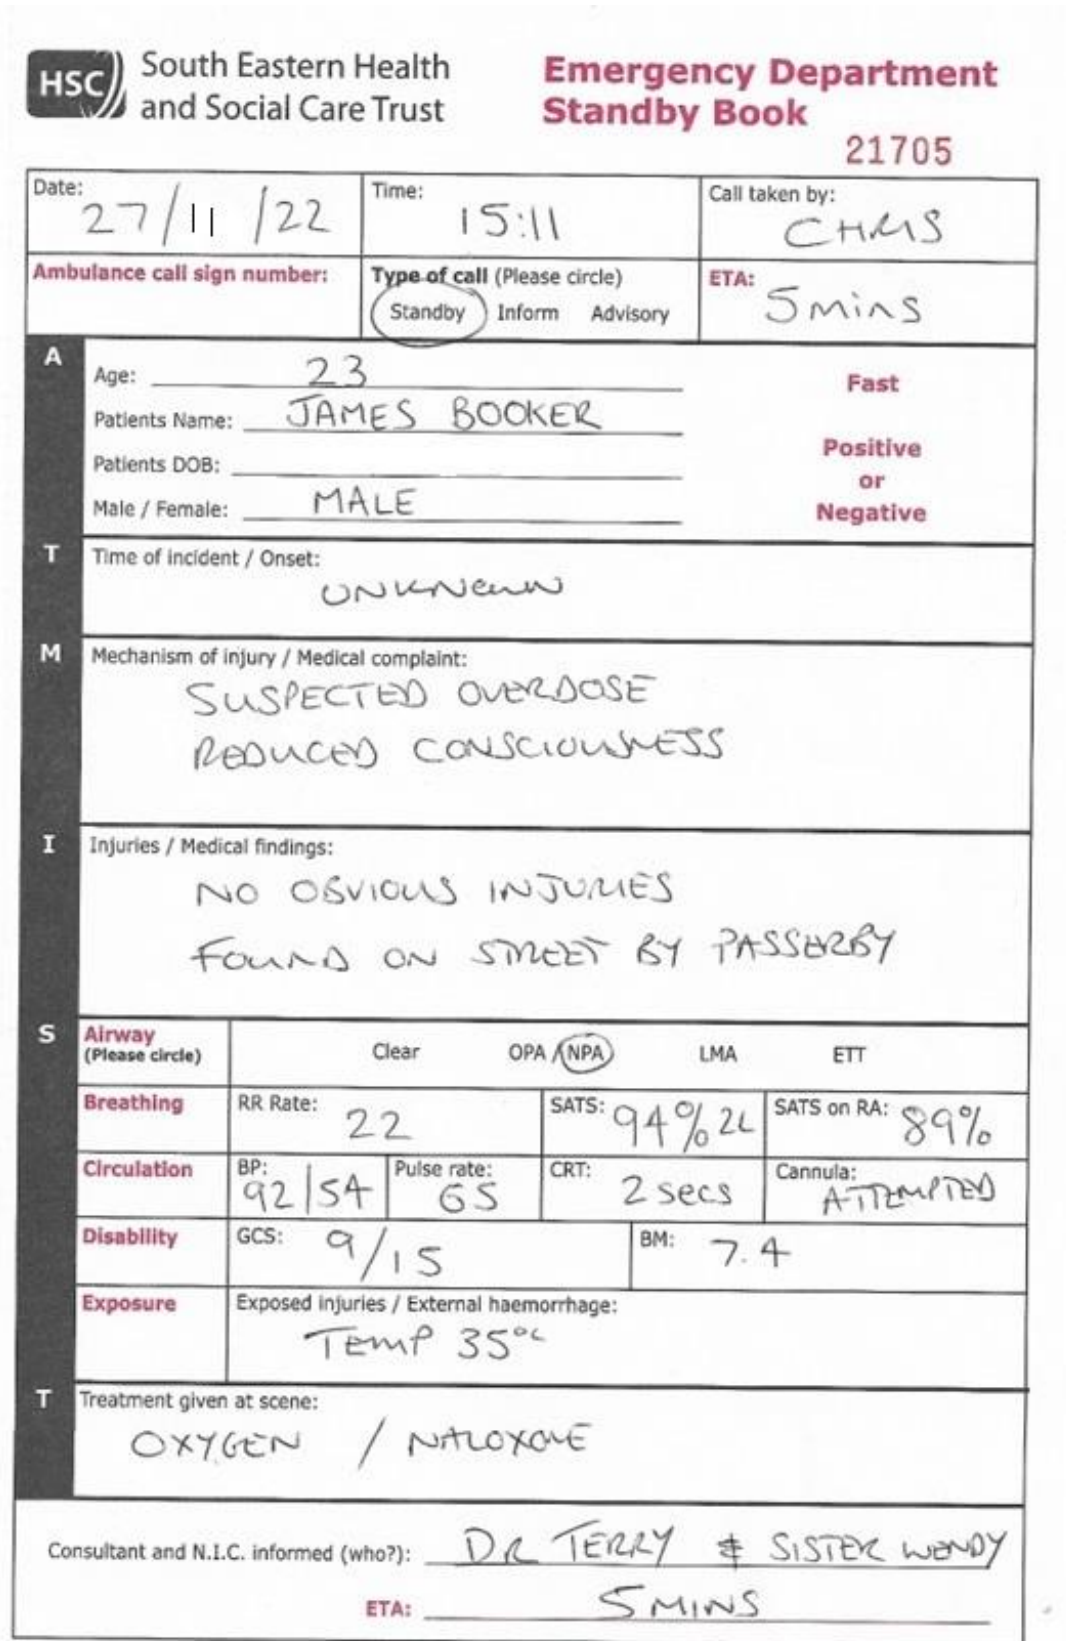 HSC South Eastern Health and Social Care Trust
Emergency Department Standby Book
21705
Date: 27/11/22
Time: 15:11
Call taken by: CHRIS
Ambulance call sign number:
Type of call (Please circle)
Standby Inform Advisory
ETA: 5 mins
A
Age: 23
Patients Name: JAMES BOOKER
Patients DOB:
Male / Female: MALE
Fast
Positive
or
Negative
T
Time of incident / Onset:
UNKNOWN
M
Mechanism of injury / Medical complaint:
SUSPECTED OVERDOSE
REDUCED CONSCIOUSNESS
I
Injuries / Medical findings:
NO OBVIOUS INJURIES
FOUND ON STREET BY PASSERBY
S
Airway (Please circle)
Clear OPA / NPA LMA ETT
Breathing
RR Rate: 22
SATS: 94% 2L
SATS on RA: 89%
Circulation
BP: 92/54
Pulse rate: 65
CRT: 2 secs
Cannula: ATTEMPTED
Disability
GCS: 9/15
BM: 7.4
Exposure
Exposed injuries / External haemorrhage:
TEMP 35°c
T
Treatment given at scene:
OXYGEN / NALOXONE
Consultant and N.I.C. informed (who?): DR TERRY & SISTER WENDY
ETA: 5 MINS